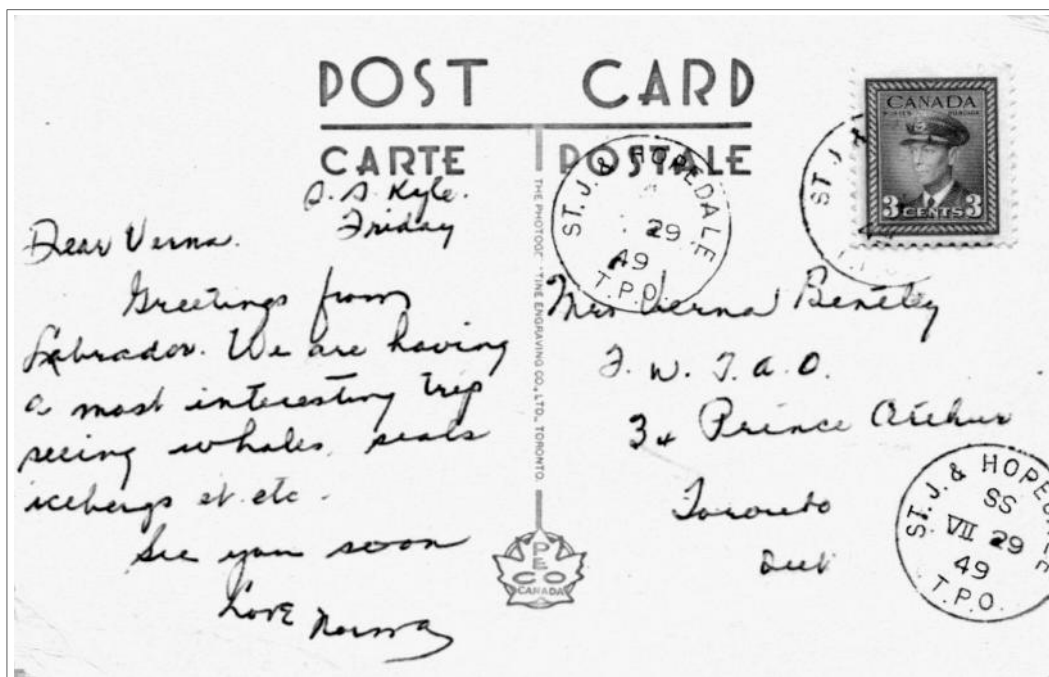 POST CARD
CARTE POSTALE
S. S. Kyle.
Friday
Dear Verna.
Greetings from
Labrador. We are having
a most interesting trip
seeing whales, seals
icebergs et. etc.
See you soon
Love Norma
THE PHOTOGE TINE ENGRAVING CO., LTD., TORONTO.
PECO
CANADA
CANADA
POSTES POSTAGE
3 CENTS 3
ST. J.
ST. J. & HOPEDALE
29
49
T.P.O.
Mrs Verna Bentley
F. W. T. A. O.
34 Prince Arthur
Toronto
Ont
ST. J. & HOPEDALE
SS
VII 29
49
T.P.O.